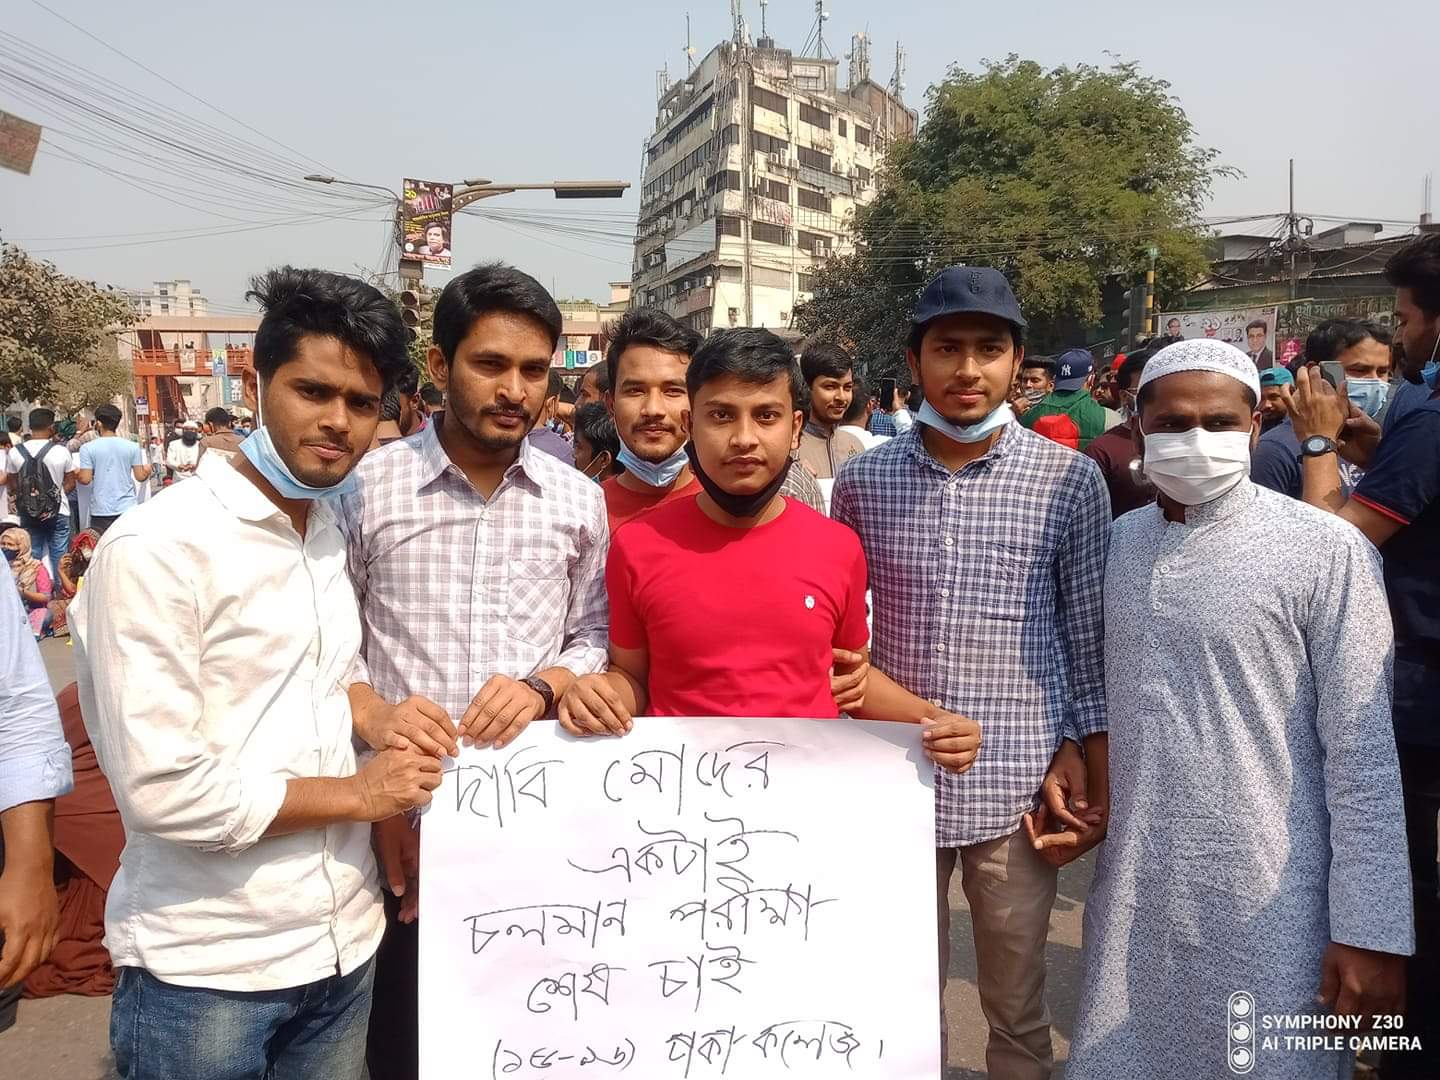 দাবি মোদের
একটাই
চলমান পরীক্ষা
শেষ চাই
(১৫-১৬) ঢাকা কলেজ।
SYMPHONY Z30
AI TRIPLE CAMERA